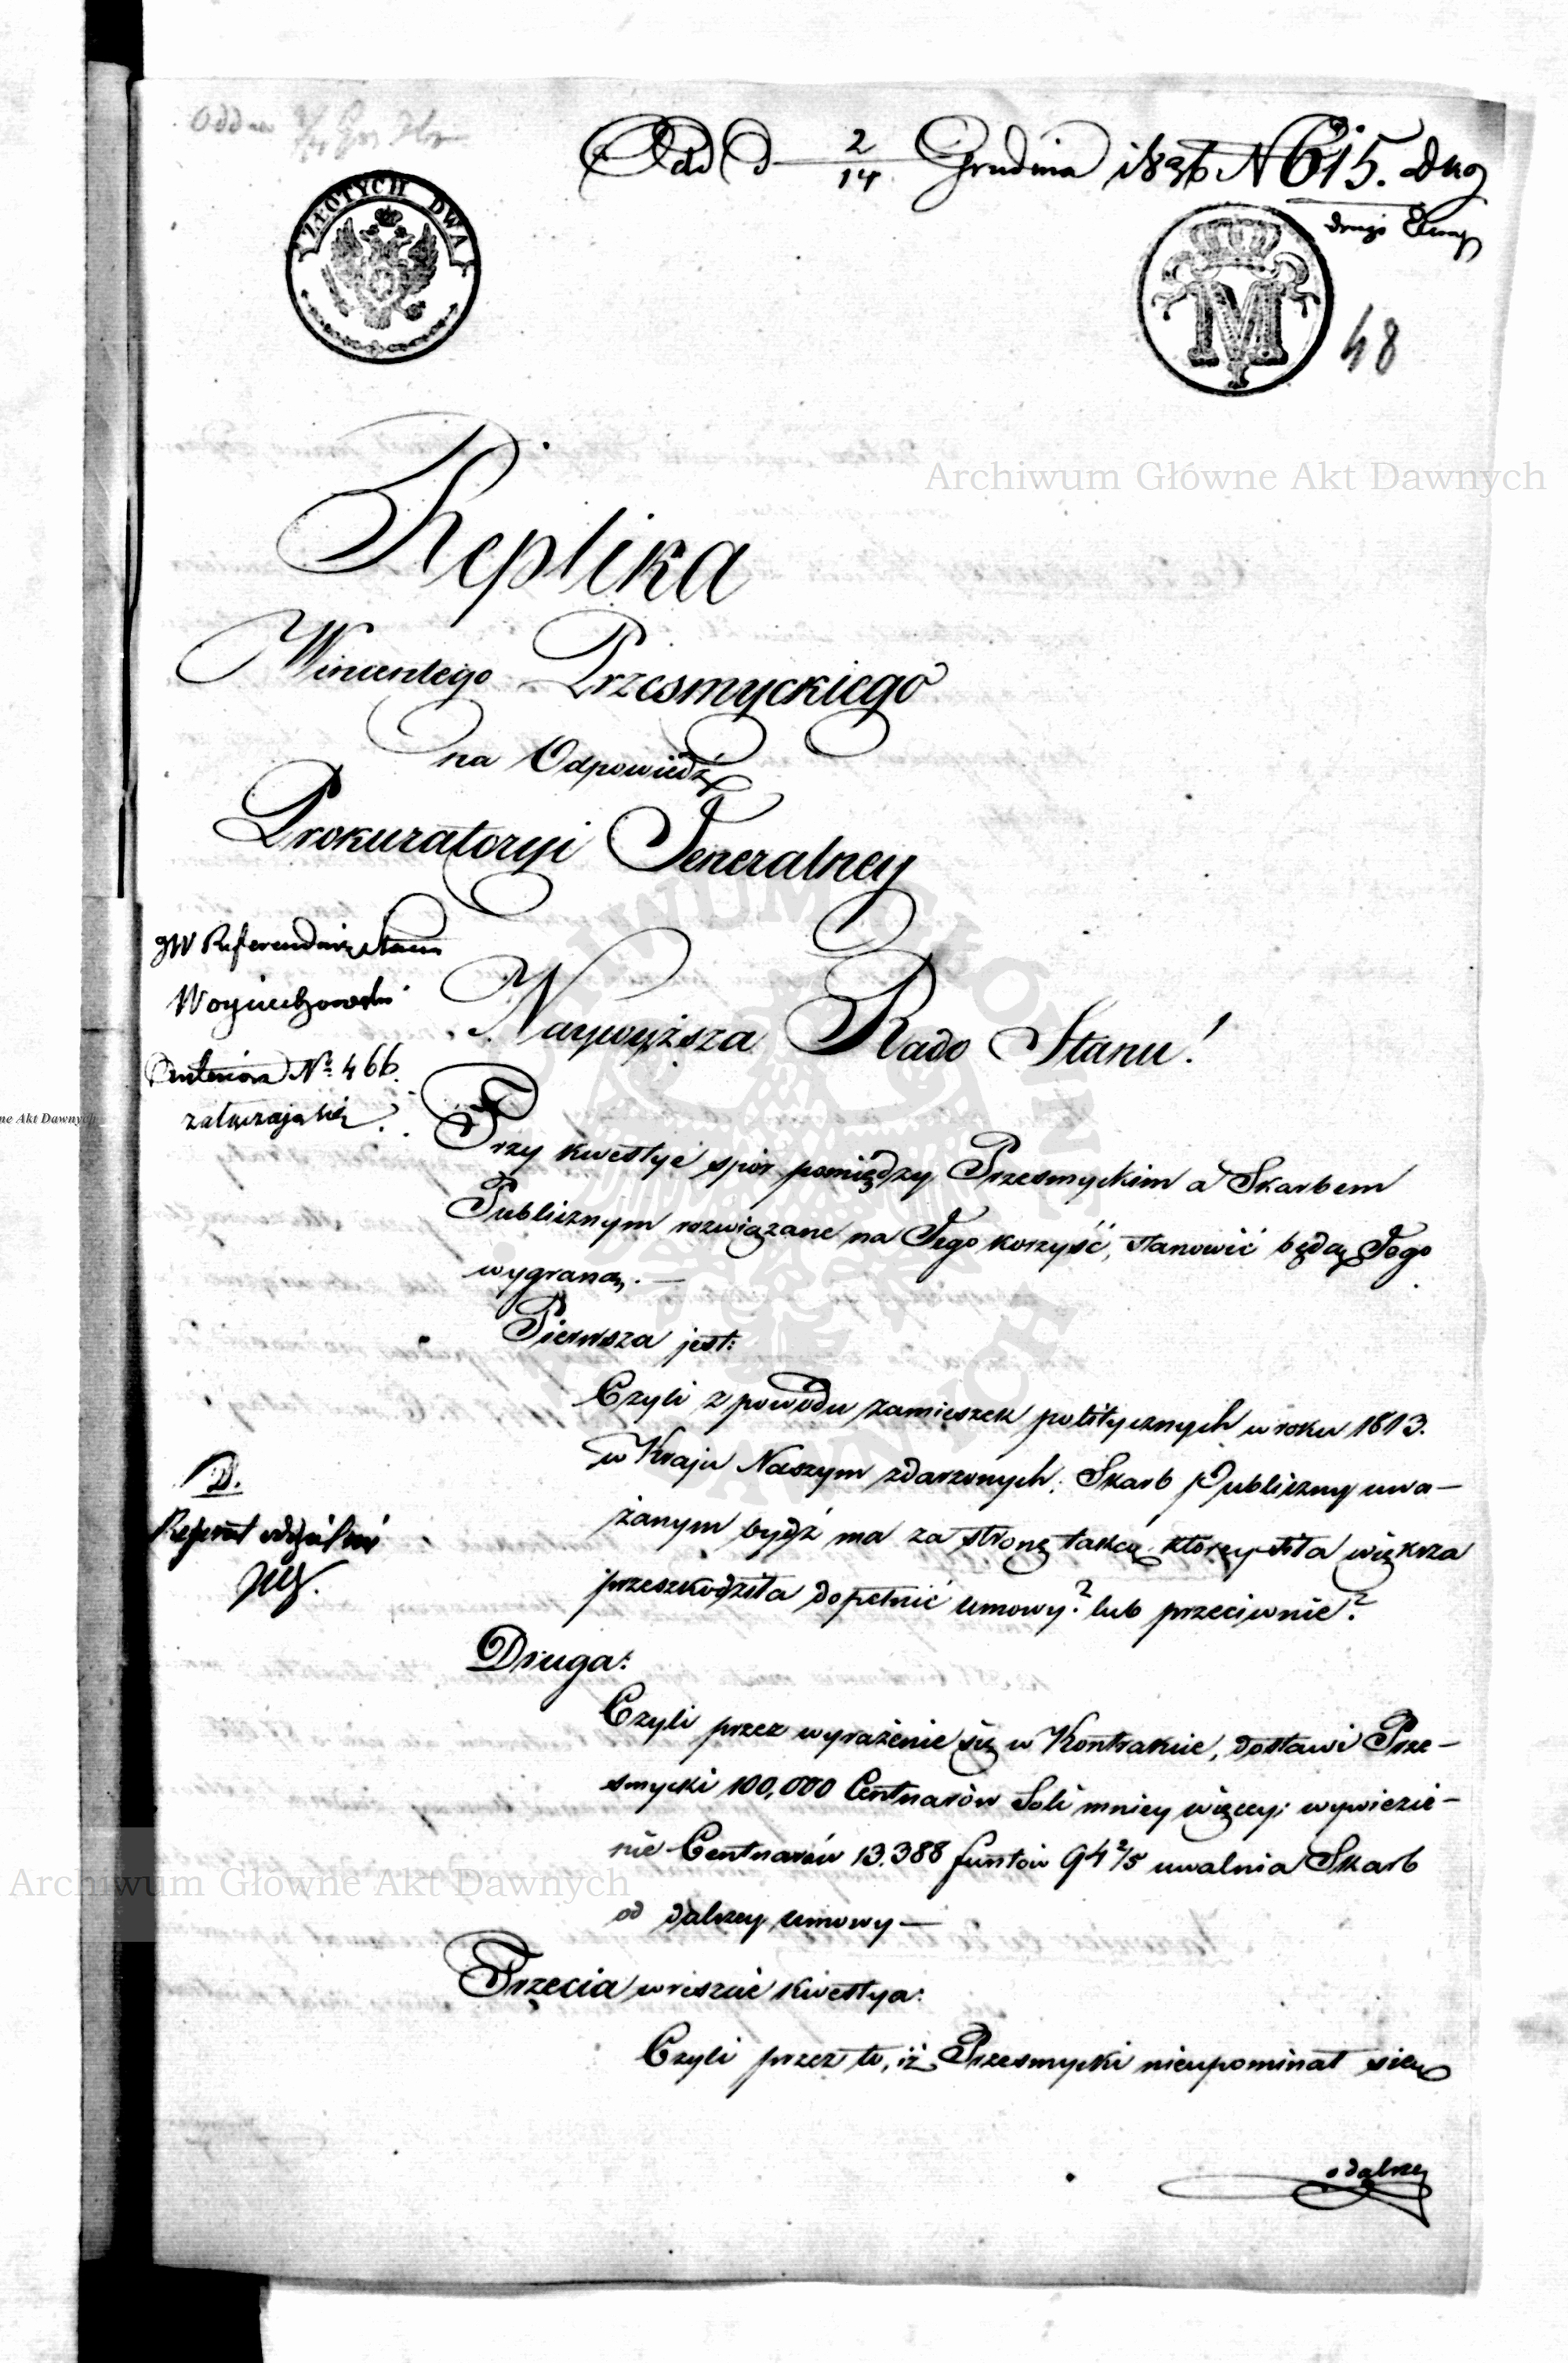 Oddno
Odd d 2/14 Grudnia 1836 N 615. Dno
drugi
ZŁOTYCH DWA
M
48
Archiwum Główne Akt Dawnych
Replika
Wincentego Przesmyckiego
na Odpowiedź
Prokuratoryi Generalney
JW Referendarz Stanu
Woyciechowski
Anteriora Nr. 466.
załączają się.
Naywyższa Rado Stanu!
Trzy kwestye spór pomiędzy Przesmyckim a Skarbem
Publicznym rozwiązane na Jego korzyść, stanowić będą Jego
wygraną.—
Pierwsza jest:
Czyli z powodu zamieszek politycznych w roku 1813.
w Kraju Naszym zdarzonych; Skarb Publiczny uwa-
żanym bydź ma za stronę taką, którey siła większa
przeszkodziła dopełnić umowy? lub przeciwnie?
D.
Referent oddzielni
Druga:
Czyli przez wyrażenie się w Kontrakcie, dostawi Prze-
smycki 100,000 Centnarów Soli mniey więcey; wywiezie-
nie Centnarów 13.388 funtów 94 2/5 uwalnia Skarb
od dalszey umowy—
Trzecia wreszcie kwestya:
Czyli przez to, iż Przesmycki nieupominał się
o dalszey
ne Akt Dawnych
Archiwum Główne Akt Dawnych
ARCHIWUM GŁÓWNE AKT DAWNYCH